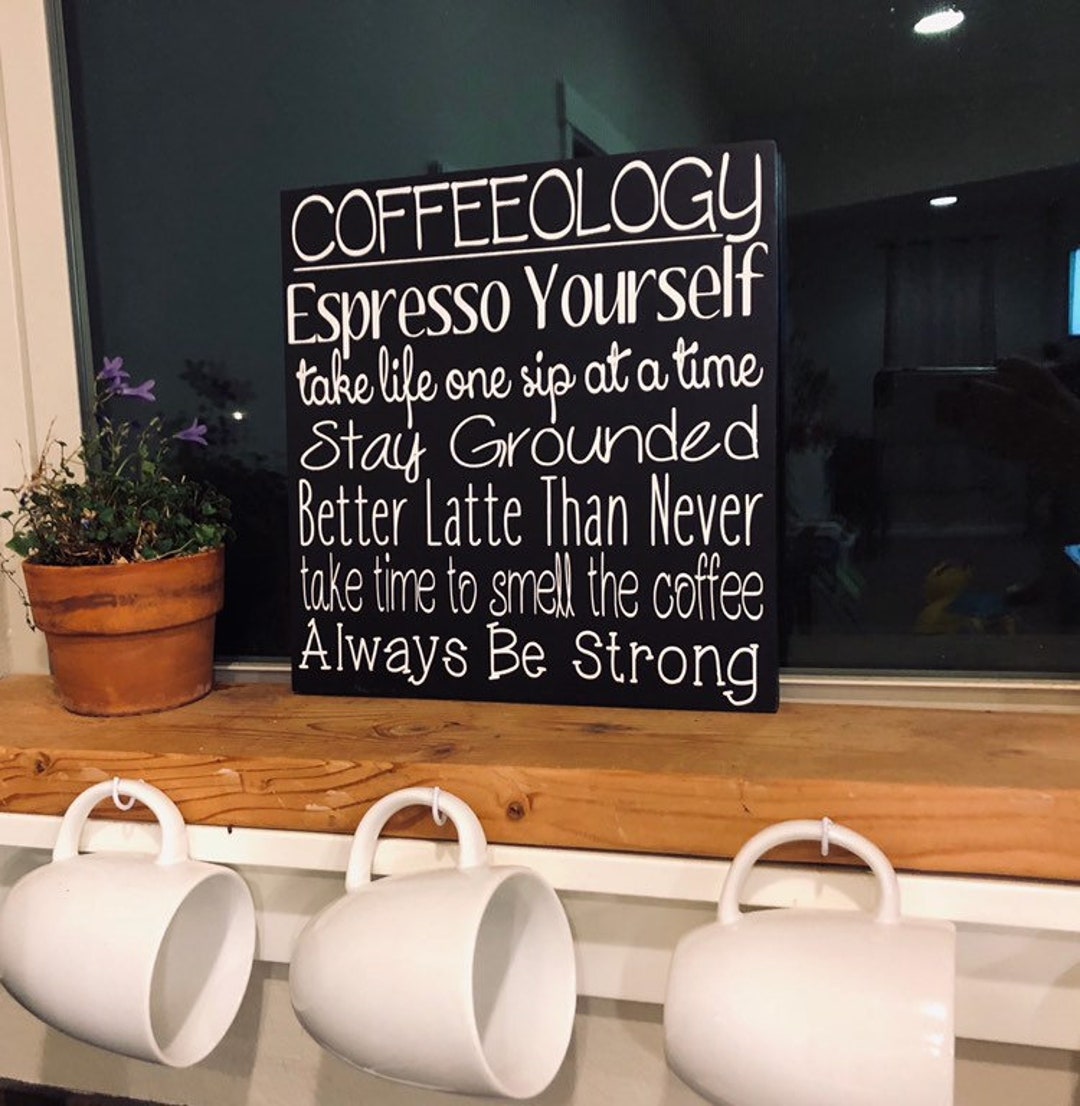 COFFEEOLOGY
Espresso Yourself
take life one sip at a time
Stay Grounded
Better Latte Than Never
take time to smell the coffee
Always Be Strong